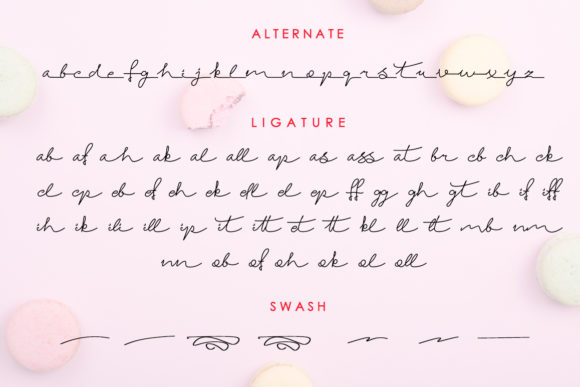 ALTERNATE
a b c d e f g h i j k l m n o p q r s t u v w x y z
LIGATURE
ab af ah ak al all ap as ass at br cb ch ck
cl cp eb ef eh ek ell el ep ff gg gh gt ib if iff
ih ik ili ill ip it itt et tt kl ll tt mb nm
nn ob of oh ok ol oll
SWASH